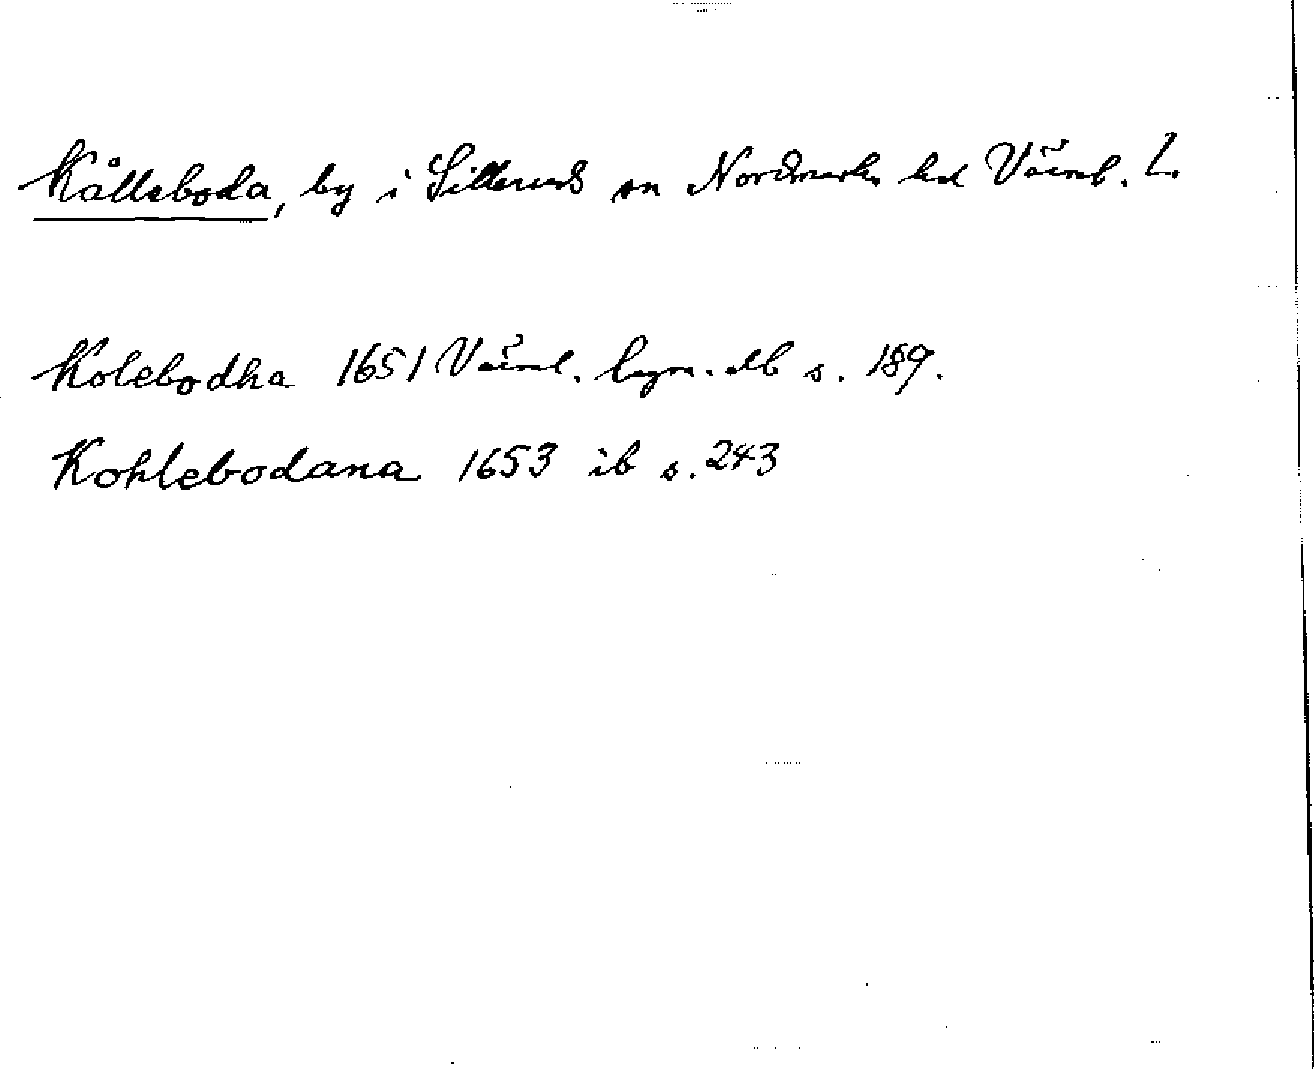 Kålleboda, by i Sillerud sn Nordmarks hd Värml. L.
Kolebodha 1651 Värml. s. 189.
Kohlebodana 1653 ib s. 243